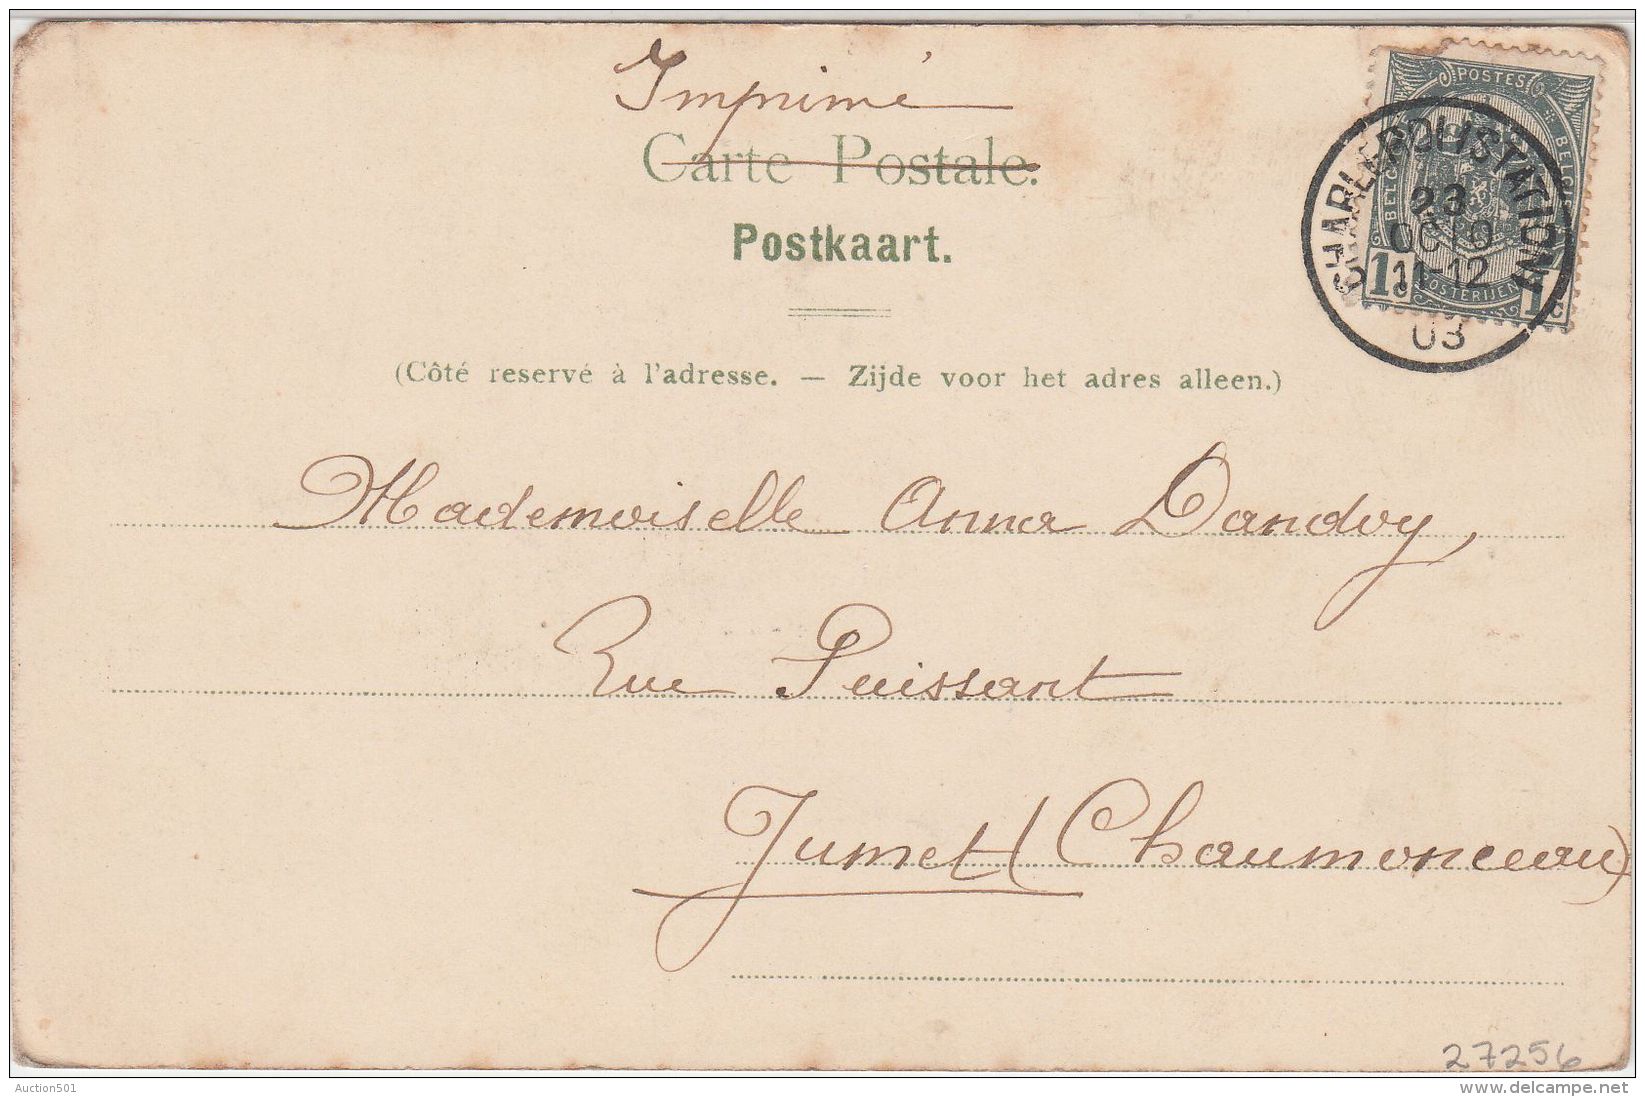 Imprimé
Carte Postale.
Postkaart.
(Côté reservé à l'adresse. — Zijde voor het adres alleen.)
POSTES
BELGIQUE BELGIE
1c POSTERIJEN 1c
CHARLEROI (STATION)
23
OCTO
11-12
03
Mademoiselle Anna Dandoy,
Rue Puissant
Jumet (Chaumonceau)
27256
Auction501
delcampe.net